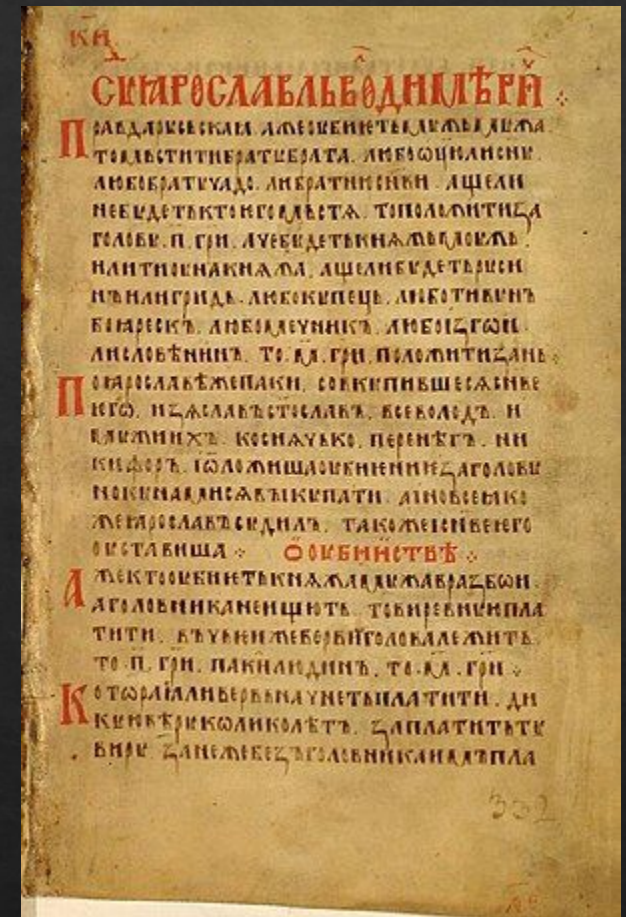 кн
СꙊДЪ ꙖРОСЛАВЛЬ ВОЛОДИМѢРИЧ
Правда роусьскаꙗ. аже оубиеть моужь моужа.
то мьстити братоу брата. любо ѡцю ли сноу.
любо братоучадо. ли братню сн҃ви. аще ли
не боудеть кто ѥго мьстѧ. то положити за
головоу. п. грн. аче боудеть кнѧжь моужь.
или тиоуна кнѧжа. аще ли боудеть роуси
нъ или гридь. любо коупець. любо тивоунъ
боꙗрескъ. любо мечникъ. любо изгои.
ли словѣнинъ. то. м. грн. положити зань
По ꙗрославѣ же паки. совкоупившесѧ сн҃ве
ѥго. изѧславъ ст҃ославъ. всеволодъ. и
моужи ихъ. коснѧчько. перенѣгъ. ни
кифоръ. и ѿложиша оубиение за головоу
но коунами сѧ выкоупати. а иное все ꙗко
же ꙗрославъ соудилъ. тако же и сн҃ве ѥго
оуставиша. О оубииствѣ
Аже кто оубиеть кнѧжа моужа в разбои.
а головника не ищють. то вирев­ноую пла
тити. въ чьеи же верви голова лежить
то. п. грн. паки людинъ. то. м. грн.
Которая ли вервь начнеть платити. ди
коую вѣроу колико лѣтъ. заплатить тоу
вироу занеже без головника имъ пла
332